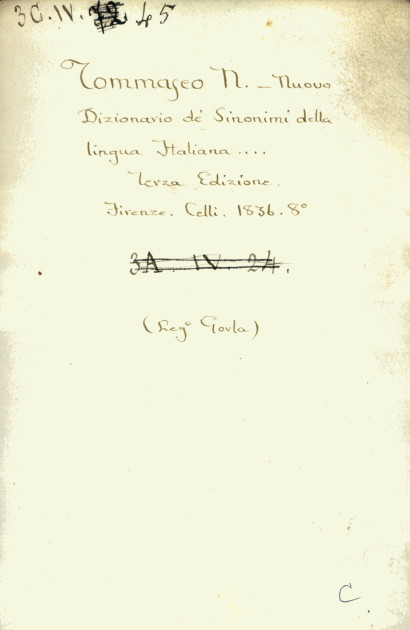 3C.IV. 45
Tommaseo N. — Nuovo
Dizionario de' Sinonimi della
lingua Italiana....
Terza Edizione.
Firenze. Celli. 1836. 8°
3A IV 24.
(Leg° Govla)
C